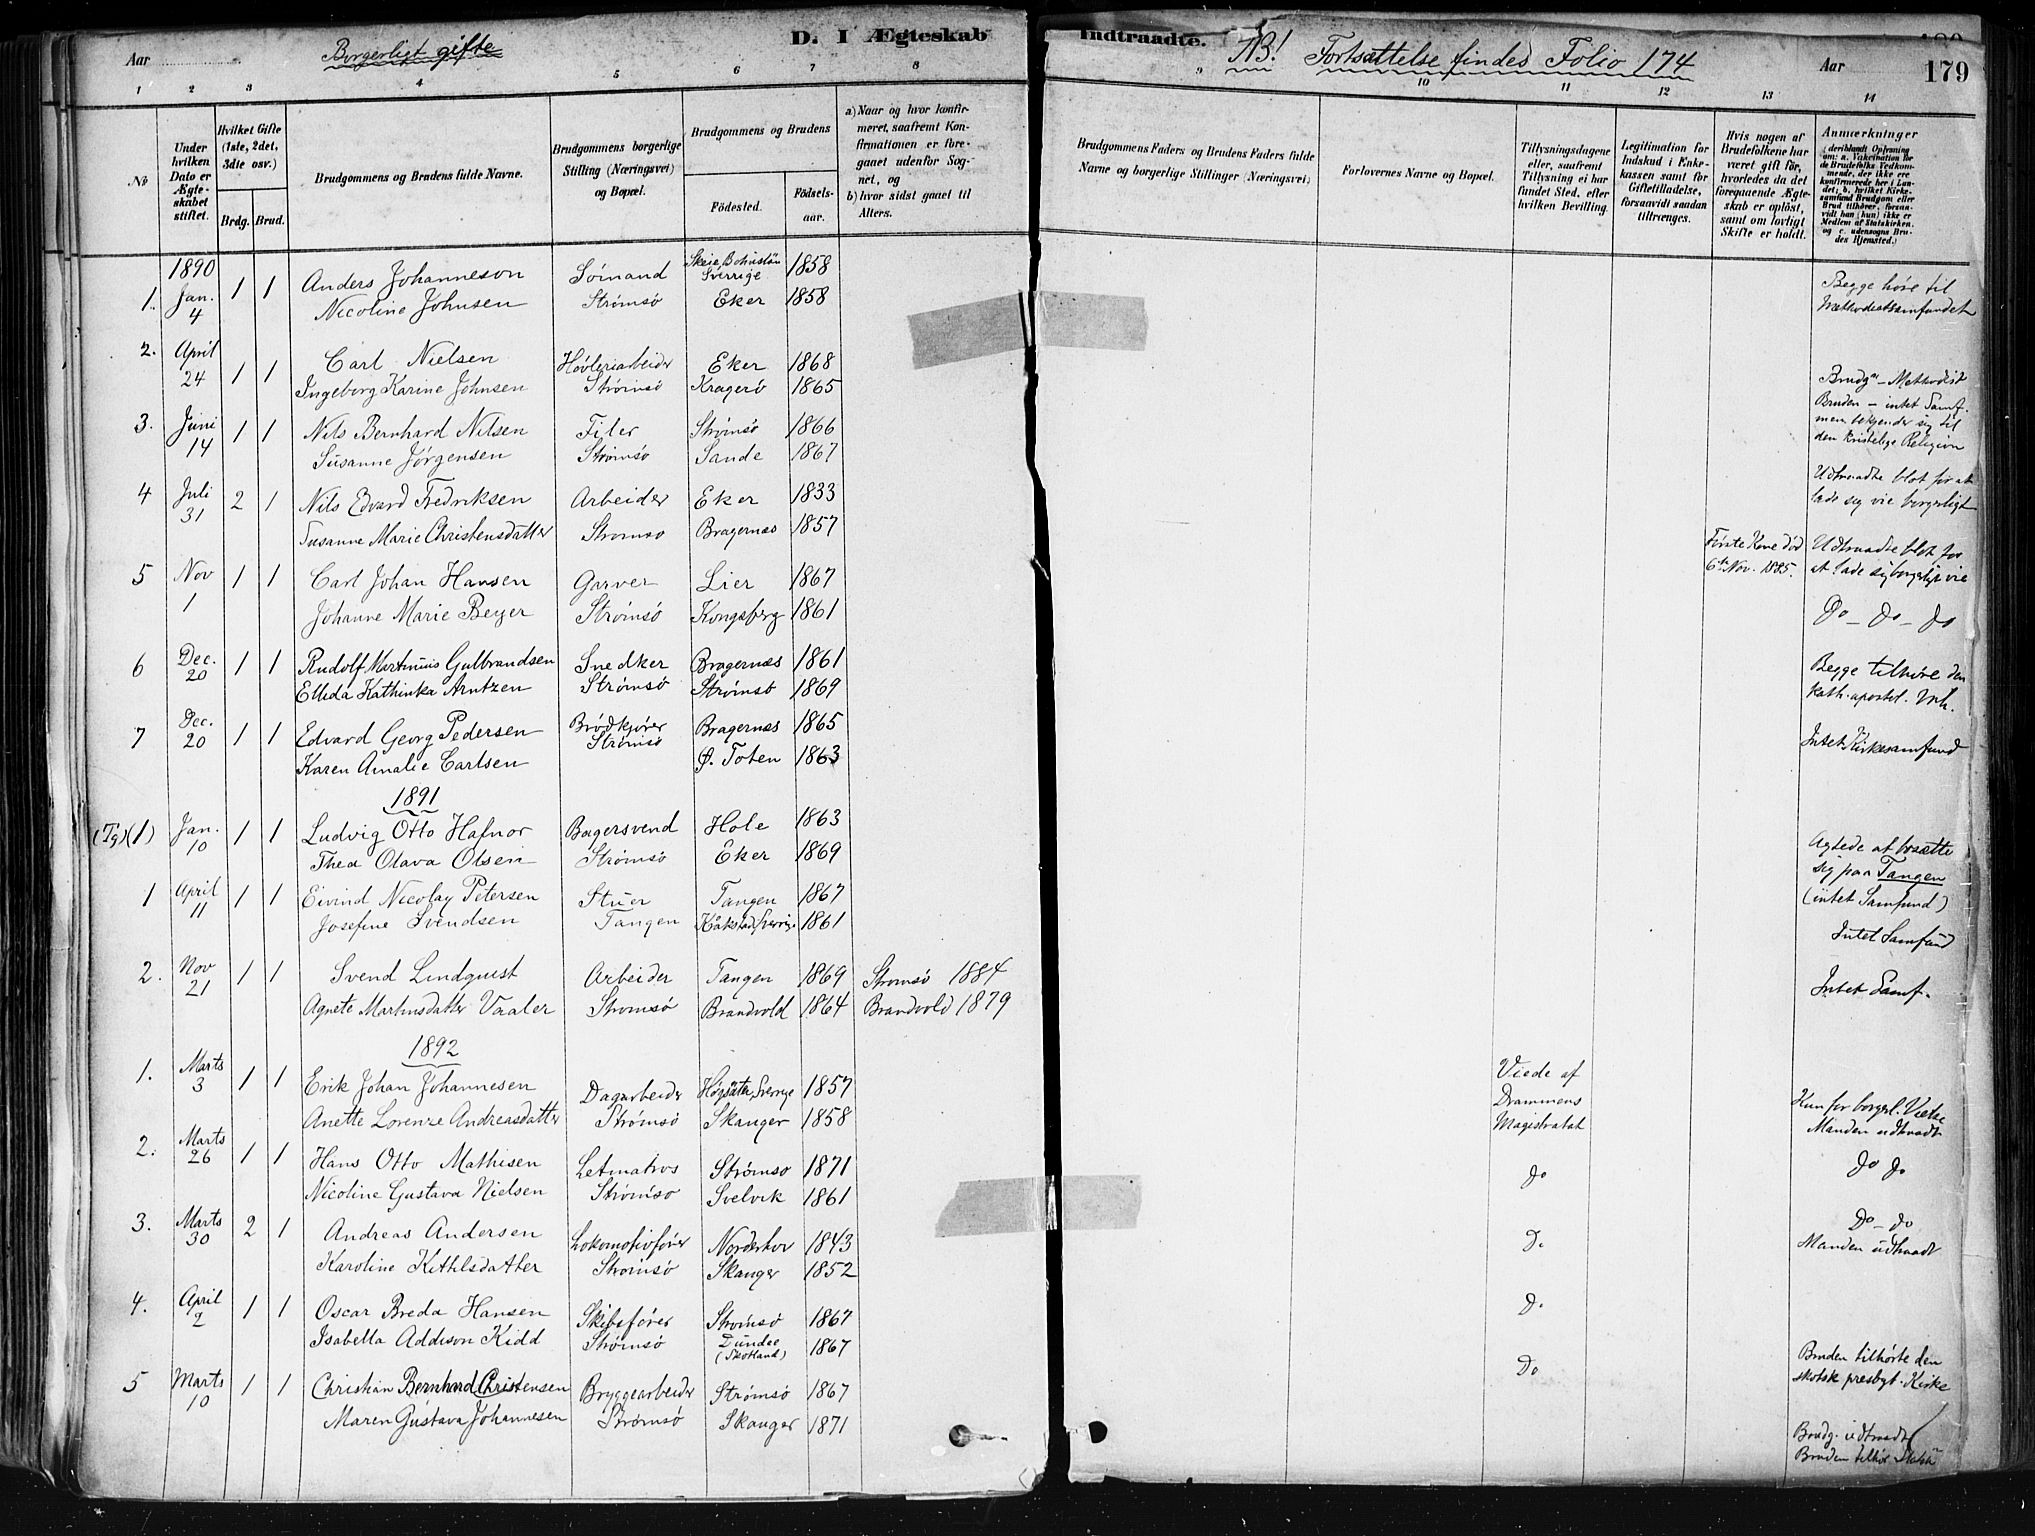 D. I Ægteskab Indtraadte.
Aar
Borgerligt gifte
NB! Fortsættelse findes Folio 174
Aar
179
1 2 3 4 5 6 7 8 9 10 11 12 13 14
No
Under hvilken Dato er Ægteskabet stiftet.
Hvilket Gifte (1ste, 2det, 3die osv.)
Brdg. Brud.
Brudgommens og Brudens fulde Navne.
Brudgommens borgerlige Stilling (Næringsvei) og Bopæl.
Brudgommens og Brudens
Födested.
Födselsaar.
a) Naar og hvor konfirmeret, saafremt Konfirmationen er foregaaet udenfor Sognet, og
b) hvor sidst gaaet til Alters.
Brudgommens Faders og Brudens Faders fulde Navne og borgerlige Stillinger (Næringsvei)
Forlovernes Navne og Bopæl.
Tillysningsdagene eller, saafremt Tillysning ei har fundet Sted, efter hvilken Bevilling.
Legitimation for Indskud i Enkekassen samt for Giftetilladelse, forsaavidt saadan tiltrænges.
Hvis nogen af Brudefolkene har været gift för, hvorledes da det foregaaende Ægteskab er oplöst, samt om lovligt Skifte er holdt.
Anmærkninger
(deriblandt Oplysning om: a. Vakcination for de Brudefolks Vedkommende, der ikke ere konfirmerede her i Landet; b. hvilket Kirkesamfund Brudgom eller Brud tilhörer, forsaavidt han (hun) ikke er Medlem af Statskirken, og c. udensogns Brudes Hjemsted.)
1890
1. Jan. 4 1 1 Anders Johanneson Sömand Skeie, Bohuslän Sverrige 1858
Nicoline Johnsen Strømsö Eker 1858
Begge høre til
Methodistsamfundet
2. April 24 1 1 Carl Nielsen Høvleriarbeider Eker 1868
Ingeborg Karine Johnsen Strømsö Kragerö 1865
Brudg. - Methodist
Bruden - intet Samf.
men bekjender sig til
den kristelige Religion
3. Juni 14 1 1 Nils Bernhard Nilsen Filer Strömsö 1866
Susanne Jörgensen Strömsö Sande 1867
Udtraadte blot for at
lade sig vie borgerligt
4 Juli 31 2 1 Nils Edvard Fredriksen Arbeider Eker 1833
Susanne Marie Christensdatter Strømsø Bragernæs 1857
Første Kone død
6te Nov. 1885.
Udtraadte blot for
at lade sig borgerligt vie
5 Nov 1 1 1 Carl Johan Hansen Garver Lier 1867
Johanne Marie Beyer Strømsö Kongsberg 1861
Do - Do - Do
6 Dec. 20 1 1 Rudolf Martinius Gulbrandsen Snedker Bragernæs 1861
Ellida Kathinka Arntzen Strømsö Strømsö 1869
Begge tilhøre den
kath. apostol. Mh.
7 Dec. 20 1 1 Edvard Georg Pedersen Brödkjører Bragernæs 1865
Karen Amalie Carlsen Strømsö Ø. Toten 1863
Intet Kirkesamfund
1891
(Tg) (1) Jan. 10 1 1 Ludvig Otto Hafnor Bagersvend Hole 1863
Thea Olava Olsen Strømsö Eker 1869
Agtede at bosætte
sig paa Tangen
(intet Samfund)
1 April 11 1 1 Eivind Nicolay Petersen Stuer Tangen 1867
Josefine Svendsen Tangen Kåkstad, Sverrige 1861
Intet Samfund
2. Nov 21 1 1 Svend Lindquist Arbeider Tangen 1869 Strømsö 1884
Agnete Martinsdatter Vaaler Strömsö Brandvold 1864 Brandvold 1879
Intet Samf.
1892
1. Marts 3 1 1 Erik Johan Johannesen Dagarbeider Högsäter, Sverrige 1857
Anette Lorenze Andreasdatter Strømsö Skanger 1858
Viede af
Drammens
Magistrat
Kun for borgerl. Vielse
Manden udtraadt
2. Marts 26 1 1 Hans Otto Mathisen Letmatros Strømsø 1871
Nicoline Gustava Nielsen Strømsø Svelvik 1861
Do
Do Do
3. Marts 30 2 1 Andreas Andersen Lokomotivfører Norderhov 1843
Karoline Kittilsdatter Strømsö Skanger 1852
D.
Do - Do
Manden udtraadt
4. April 2 1 1 Oscar Breda Hansen Skibsfører Strømsö 1867
Isabella Addison Kidd Strømsö Dundee (Skotland) 1867
D.
Bruden tilhørte den
skotsk presbyt. Kirke
5 Marts 10 1 1 Christian Bernhard Christensen Bryggearbeider Strømsö 1867
Maren Gustava Johannesen Strømsö Skanger 1871
Do
Brudg. udtraadt
Bruden tilhör